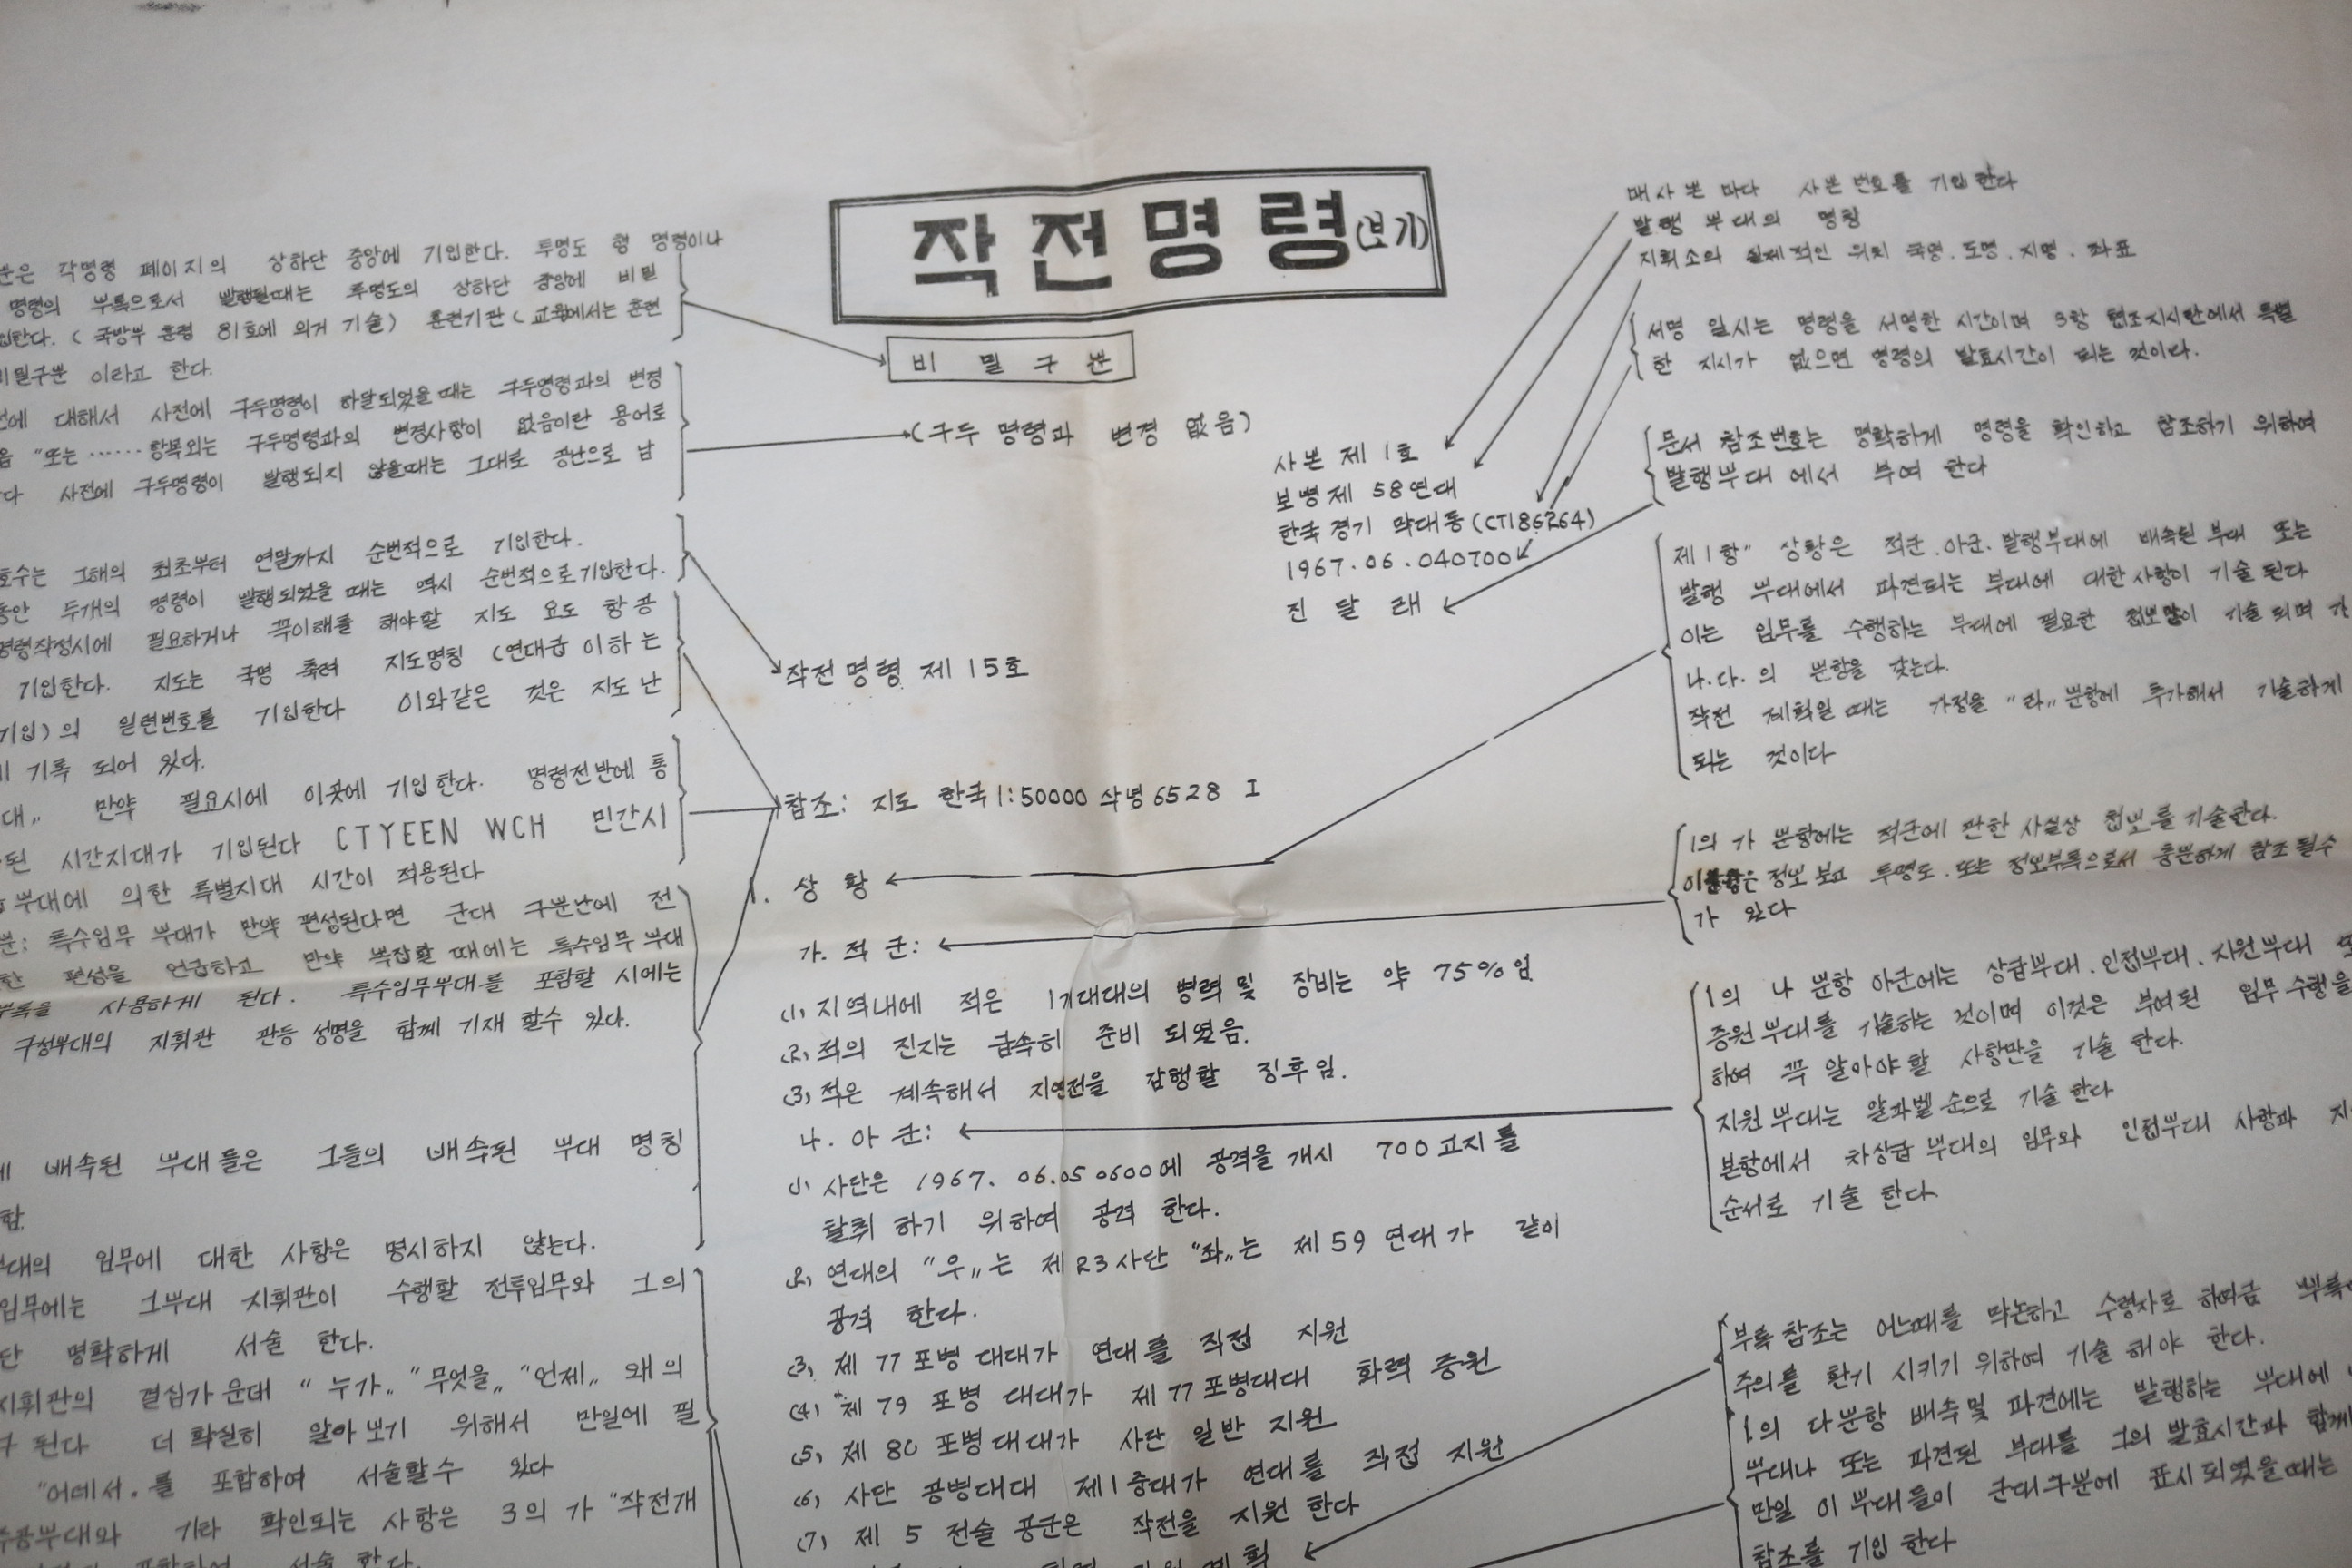 작전명령(보기)
분은 각명령 페이지의 상하단 중앙에 기입한다. 투명도 형 명령이나
명령의 부록으로서 발행될때는 투명도의 상하단 중앙에 비밀
입한다. ( 국방부 훈령 81호에 의거 기술) 훈련기관 ( 교육에서는 훈련
비밀구분 이라고 한다.
비 밀 구 분
전에 대해서 사전에 구두명령이 하달되었을 때는 구두명령과의 변경
음 "또는 ……항목외는 구두명령과의 변경사항이 없음이란 용어로
다 사전에 구두명령이 발행되지 않을때는 그대로 공난으로 남
(구두 명령과 변경 없음)
호수는 그해의 최초부터 연말까지 순번적으로 기입한다.
동안 두개의 명령이 발행되었을 때는 역시 순번적으로기입한다.
명령작성시에 필요하거나 꼭이해를 해야할 지도 요도 항공
기입한다. 지도는 국명 축척 지도명칭 (연대급 이하는
기입)의 일련번호를 기입한다 이와같은 것은 지도 난
기록 되어 있다.
대„ 만약 필요시에 이곳에 기입한다. 명령전반에 통
된 시간지대가 기입된다 CTYEEN WCH 민간시
부대에 의한 특별지대 시간이 적용된다
분: 특수임무 부대가 만약 편성된다면 군대 구분난에 전
한 편성을 언급하고 만약 복잡할 때에는 특수임무 부대
부록을 사용하게 된다. 특수임무부대를 포함할 시에는
구성부대의 지휘관 관등 성명을 함께 기재 할수 있다.
배속된 부대들은 그들의 배속된 부대 명칭
함.
부대의 임무에 대한 사항은 명시하지 않는다.
임무에는 그부대 지휘관이 수행할 전투임무와 그의
단 명확하게 서술 한다.
지휘관의 결심가운데 "누가„ "무엇을„ "언제„ 왜의
구 된다 더 확실히 알아보기 위해서 만일에 필
"어데서„를 포함하여 서술할수 있다
주공부대와 기타 확인되는 사항은 3의 가 "작전개
서술 한다.
사본 제 1호
보병제 58연대
한국 경기 막대동(CT186264)
1967.06.040700
진 달 래
작전명령 제 15호
참조: 지도 한국 1:50000 삭녕 6528 I
1. 상 황
가. 적 군:
(1) 지역내에 적은 1개대대의 병력및 장비는 약 75%임
(2) 적의 진지는 급속히 준비 되였음.
(3) 적은 계속해서 지연전을 감행할 징후임.
나. 아 군:
(1) 사단은 1967. 06.05 0600에 공격을 개시 700고지를
탈취 하기 위하여 공격 한다.
(2) 연대의 "우„는 제23사단 "좌„는 제59연대가 같이
공격 한다.
(3) 제 77포병 대대가 연대를 직접 지원
(4) 제 79 포병 대대가 제77포병대대 화력 증원
(5) 제 80 포병대대가 사단 일반 지원
(6) 사단 공병대대 제1중대가 연대를 직접 지원
(7) 제 5 전술 공군은 작전을 지원 한다
매사본 마다 사본 번호를 기입 한다
발행 부대의 명칭
지휘소의 실제적인 위치 국명.도명.지명.좌표
서명 일시는 명령을 서명한 시간이며 3항 협조지시란에서 특별
한 지시가 없으면 명령의 발효시간이 되는 것이다.
문서 참조번호는 명확하게 명령을 확인하고 참조하기 위하여
발행부대에서 부여 한다
제1항" 상황은 적군.아군.발행부대에 배속된 부대 또는
발행 부대에서 파견되는 부대에 대한사항이 기술 된다
이는 임무를 수행하는 부대에 필요한 첩보만이 기술 되며 가
나.다.의 분항을 갖는다.
작전 계획일 때는 가정을 "라„ 분항에 추가해서 기술하게
되는 것이다
1의 가 분항에는 적군에 관한 사실상 첩보를 기술한다.
정보 보고 투명도.또는 정보부록으로서 충분하게 참조 될수
가 있다
1의 나 분항 아군에는 상급부대.인접부대.지원부대 또
증원부대를 기술하는 것이며 이것은 부여된 임무 수행을
하여 꼭 알아야 할 사항만을 기술 한다.
지원부대는 알파벨 순으로 기술 한다
본항에서 차상급 부대의 임무와 인접부대 사항과 지
순서로 기술 한다
부록 참조는 어느때를 막논하고 수령자로 하여금 부록
주의를 환기 시키기 위하여 기술 해야 한다.
1의 다분항 배속및 파견에는 발행하는 부대에
부대나 또는 파견된 부대를 그의 발효시간과 함께
만일 이 부대들이 군대구분에 표시되였을때는
참조를 기입 한다